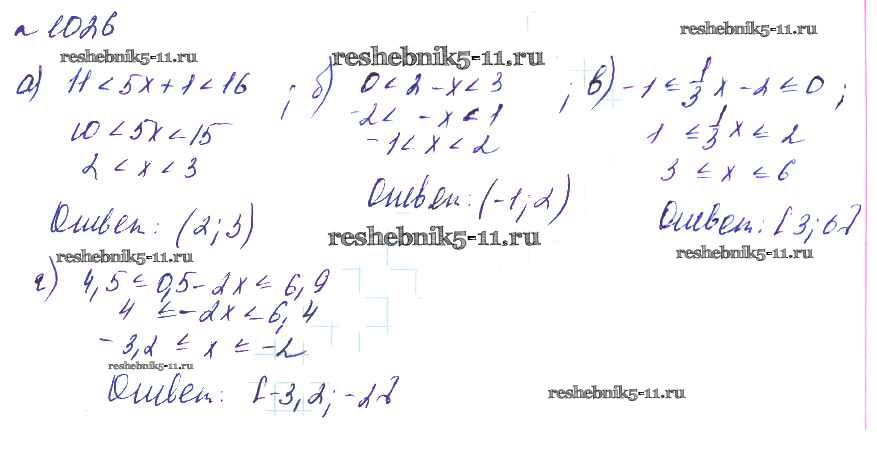 № 1026
reshebnik5-11.ru
reshebnik5-11.ru
reshebnik5-11.ru
а) 11 < 5x + 1 < 16 ;
10 < 5x < 15
2 < x < 3
Ответ: (2; 3)
б) 0 < 2 - x < 3 ;
-2 < -x < 1
-1 < x < 2
Ответ: (-1; 2)
в) -1 ≤ 1/3 x - 2 ≤ 0 ;
1 ≤ 1/3 x ≤ 2
3 ≤ x ≤ 6
Ответ: [3; 6]
reshebnik5-11.ru
reshebnik5-11.ru
reshebnik5-11.ru
г) 4,5 ≤ 0,5 - 2x ≤ 6,9
4 ≤ -2x ≤ 6,4
-3,2 ≤ x ≤ -2
reshebnik5-11.ru
Ответ: [-3,2; -2]
reshebnik5-11.ru